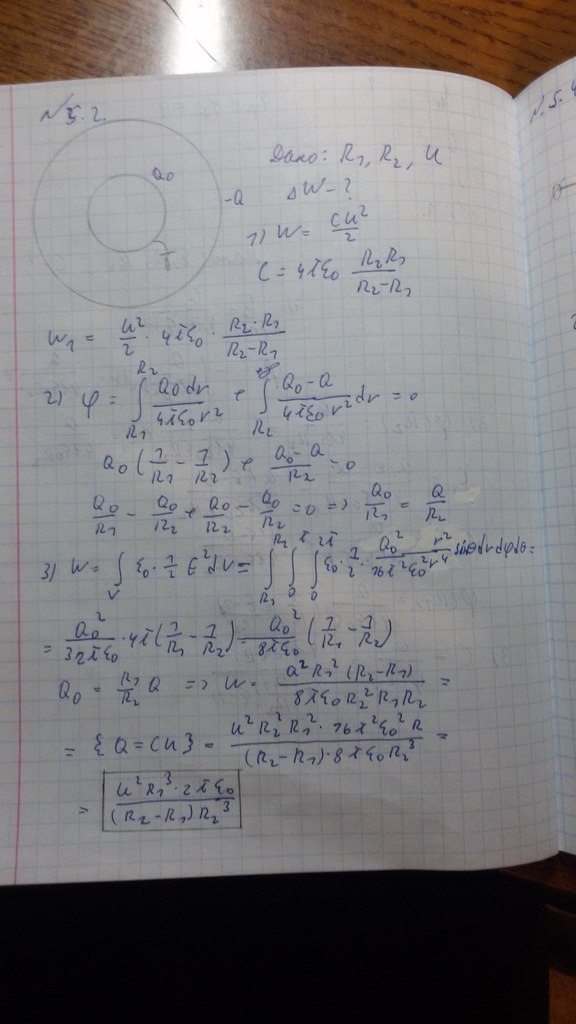 N 5.2.
N.5.4
Q₀
-Q
Дано: R₁, R₂, U
ΔW - ?
1) W = CU²/2
C = 4πε₀ R₂R₁/(R₂-R₁)
W₁ = U²/2 · 4πε₀ · R₂·R₁/(R₂-R₁)
2) φ = ∫_{R₁}^{R₂} Q₀dr/(4πε₀r²) + ∫_{R₂}^{∞} (Q₀-Q)/(4πε₀r²) dr = 0
Q₀(1/R₁ - 1/R₂) + (Q₀-Q)/R₂ = 0
Q₀/R₁ - Q₀/R₂ + Q₀/R₂ - Q₀/R₂ = 0 => Q₀/R₁ = Q/R₂
3) W = ∫_V ε₀·1/2 E²dV = ∫_{R₁}^{R₂} ∫_0^π ∫_0^{2π} ε₀·1/2·Q₀²/(16π²ε₀²r⁴) r² sinθdrdφdθ =
= Q₀²/(32πε₀) · 4π(1/R₁ - 1/R₂) = Q₀²/(8πε₀) (1/R₁ - 1/R₂)
Q₀ = R₁/R₂ Q => W = Q²R₁²(R₂-R₁)/(8πε₀R₂²R₁R₂) =
= {Q = CU} = U²R₂²R₁²·16π²ε₀²R/((R₂-R₁)·8πε₀R₂³) =
= U²R₁³·2πε₀/((R₂-R₁)R₂³)